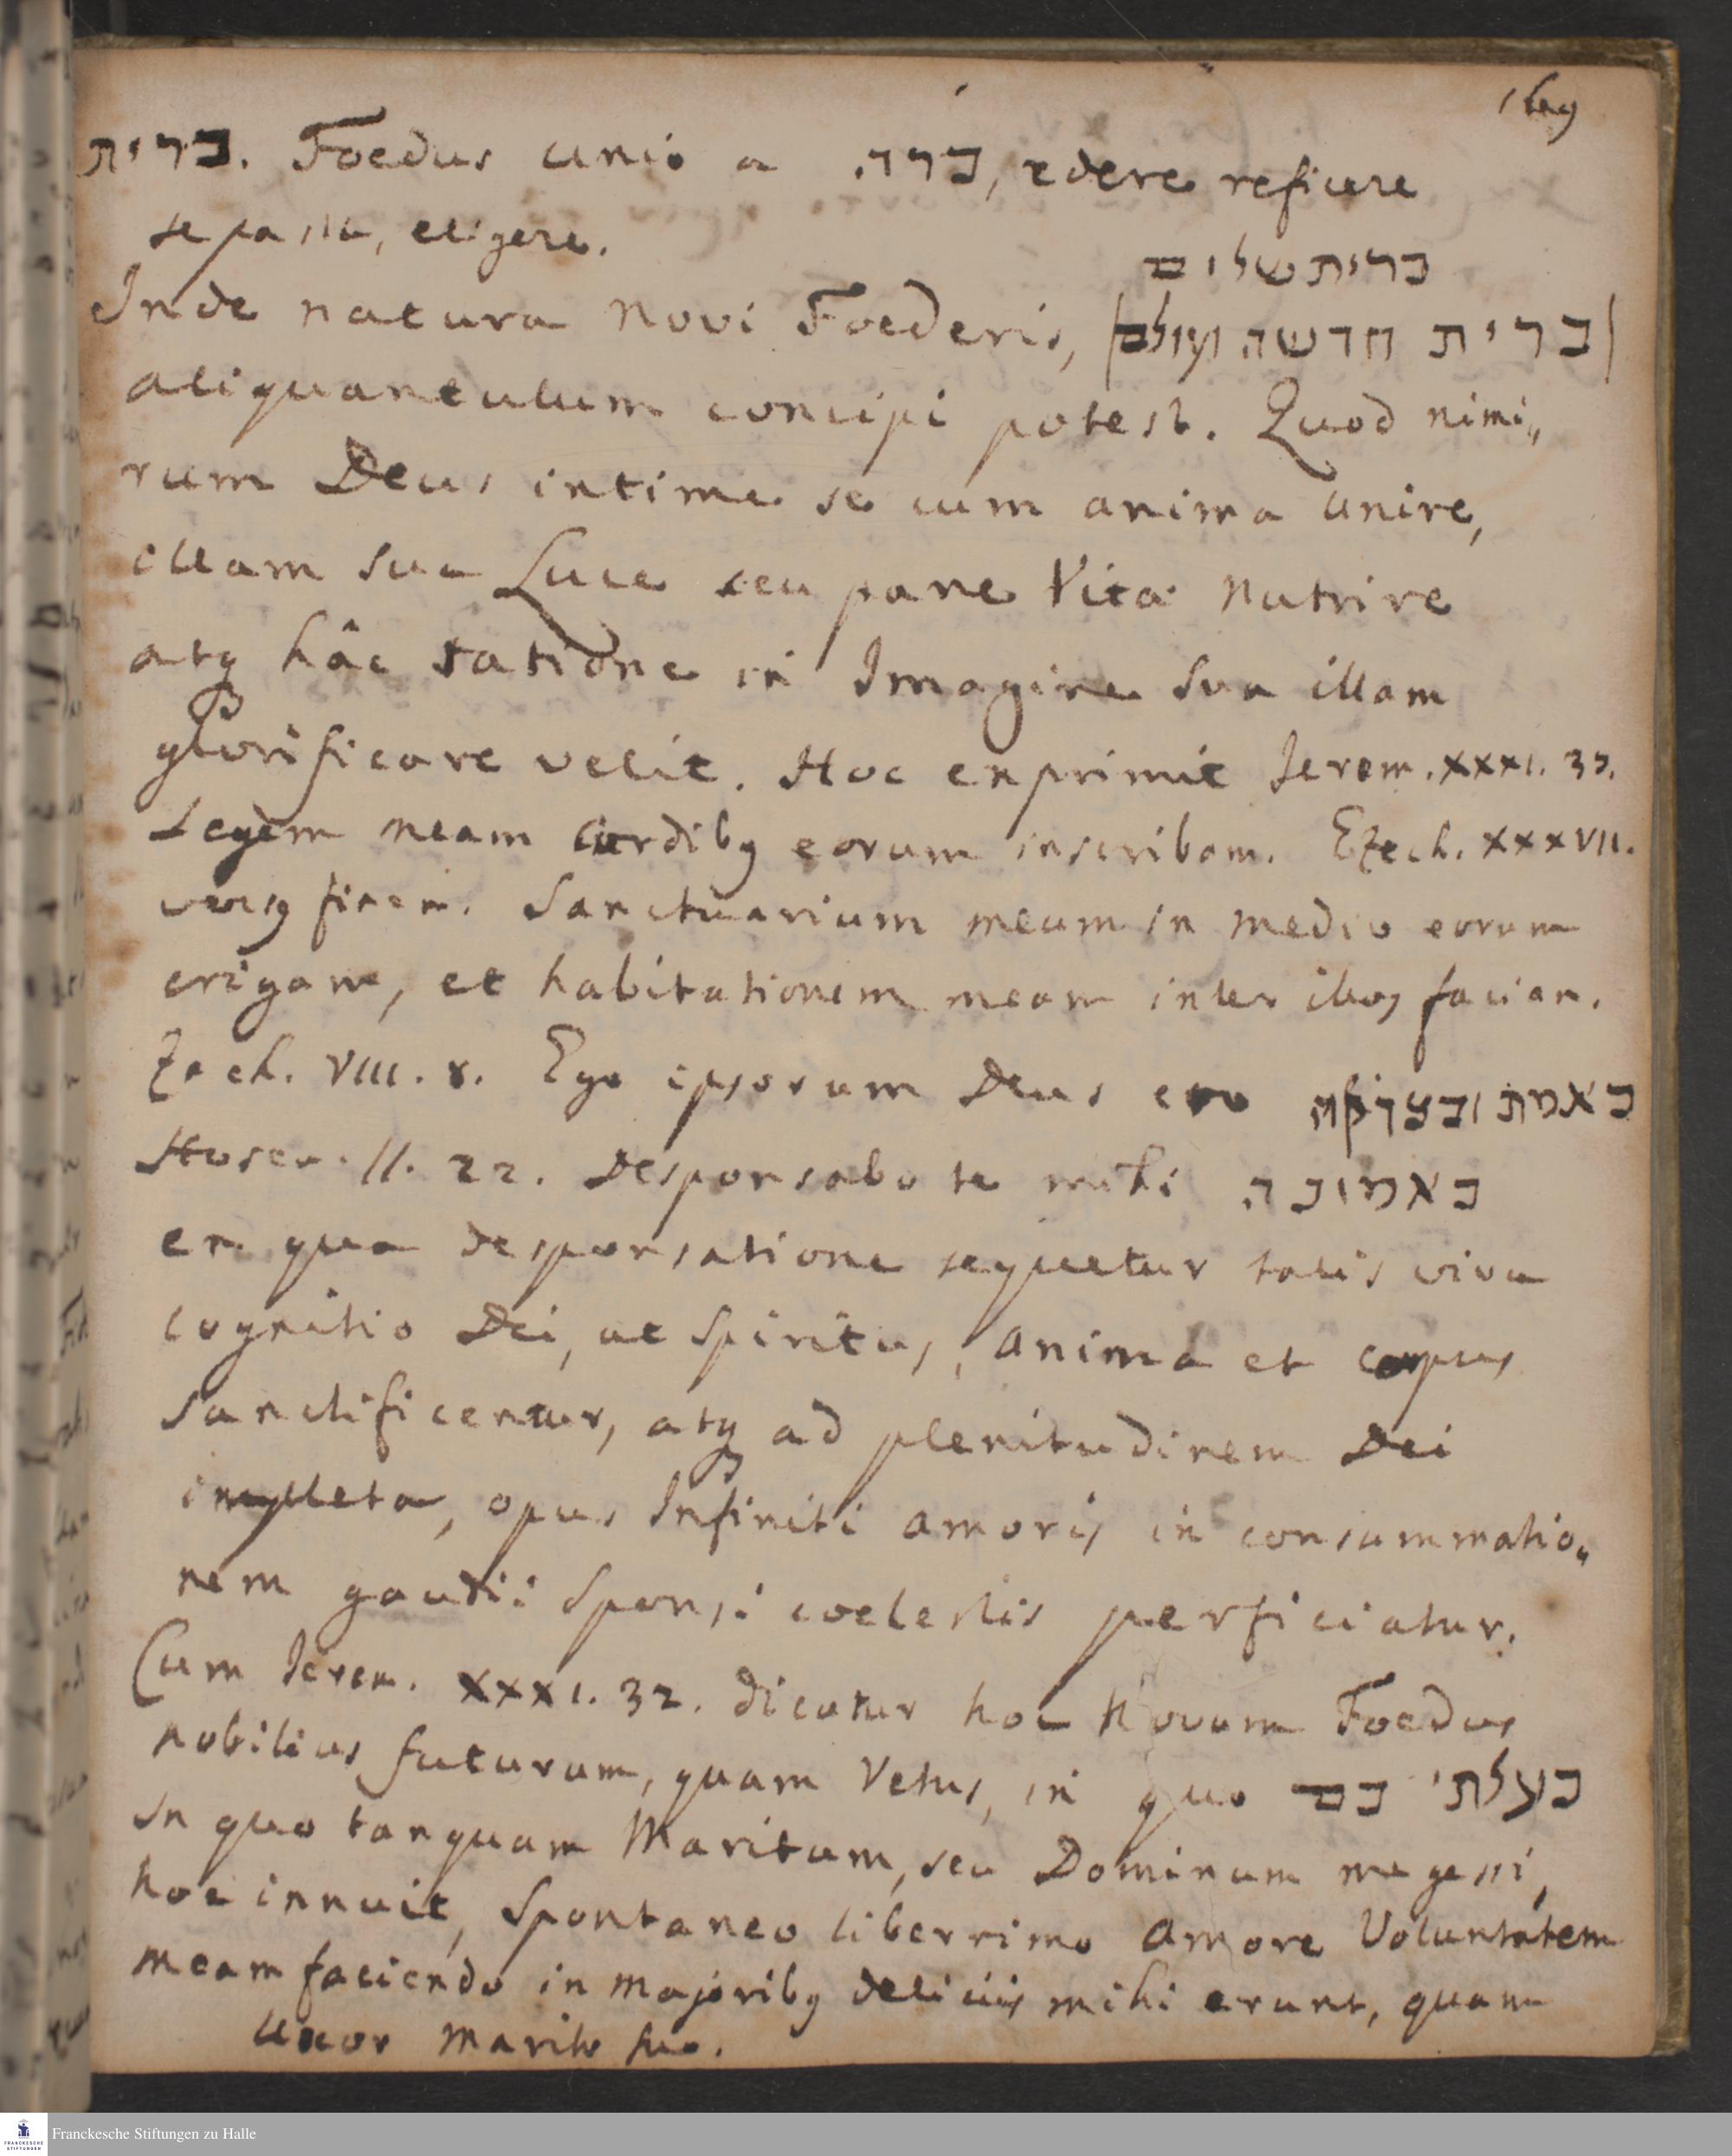 ברית. Foedus unio a ברה, edere reficere
se pastu, eligere.
ברית שלום
Inde natura novi Foederis, (ברית חדשה ועולם)
aliquantulum concipi potest. Quod nimi„
rum Deus intime se cum anima unire,
illam sua Luce seu pane Vitæ nutrire
atq hâc ratione in Imagine sua illam
glorificare velit. Hoc exprimit Jerem. XXXI. 33.
Legem meam cordibq eorum inscribam. Ezech. XXXVII.
versq finem. Sanctuarium meum in medio eorum
erigam, et habitationem meam inter illos faciam.
Zach. VIII. 8. Ego ipsorum Deus ero באמת ובצדקה
Hosea. II. 22. Desponsabo te mihi באמונה
ex qua desponsatione sequetur talis viva
cognitio Dei, ut Spiritus, anima et corpus
Sanctificentur, atq ad plenitudinem Dei
impleta, opus Infiniti amoris in consummatio„
nem gaudii Sponsi coelestis perficiatur.
Cum Jerem. XXXI. 32. dicatur hoc Novum Foedus
nobilius futurum, quam Vetus, in quo בעלתי בם
in quo tanquam Maritum, seu Dominum me gessi,
hoc innuit, Spontaneo liberrimo amore Voluntatem
meam faciendo in majoribq deliciis mihi erunt, quam
uxor marito suo.
Franckesche Stiftungen zu Halle
FRANCKESCHE
STIFTUNGEN